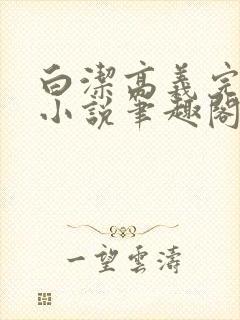 白潔高義完
小說筆趣閣
一望雲濤